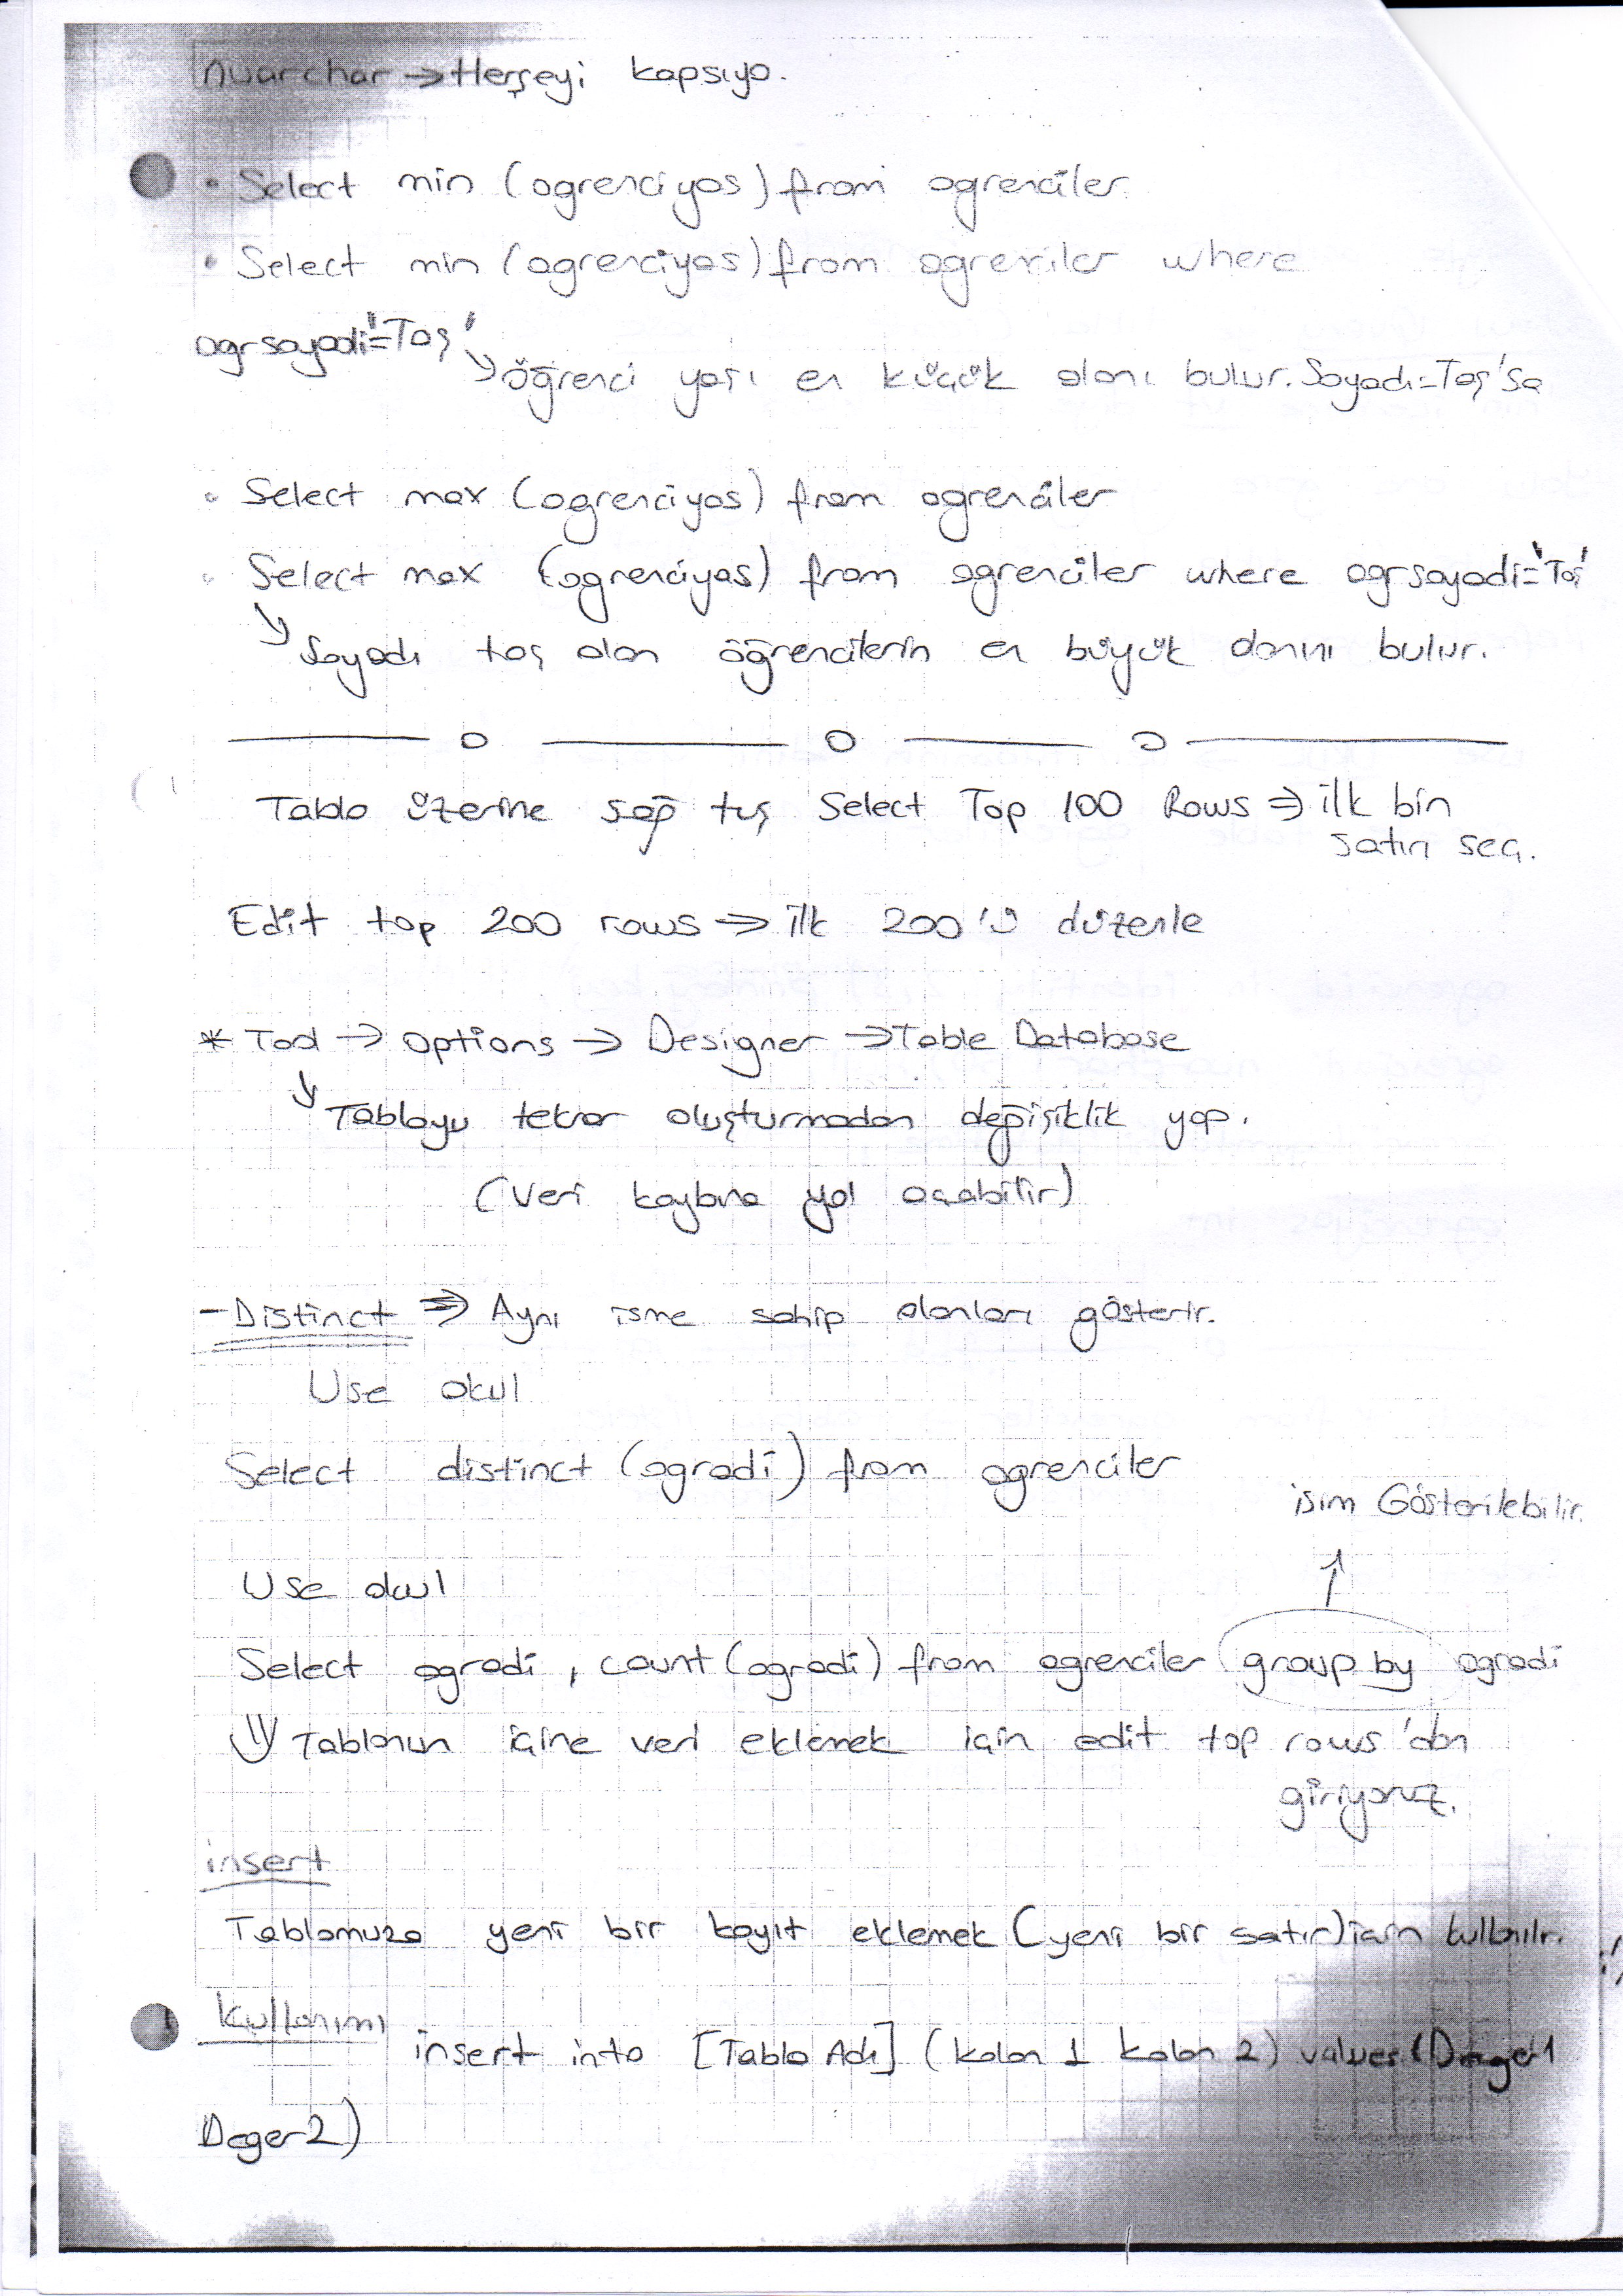 nvarchar → Herşeyi kapsıyo.
• Select min (ogrenciyas) from ogrenciler
• Select min (ogrenciyas) from ogrenciler where
ogrsoyadi='Taş'
↘ öğrenci yaşı en küçük olanı bulur. Soyadı=Taş'sa
• Select max (ogrenciyas) from ogrenciler
• Select max (ogrenciyas) from ogrenciler where ogrsoyadi='Taş'
↘ Soyadı taş olan öğrencilerin en büyük olanını bulur.
Tablo üzerine sağ tuş Select Top 100 Rows ⇒ ilk bin
satırı seç.
Edit top 200 rows ⇒ ilk 200'ü düzenle
* Tool → Options → Designer → Table Database
↘ Tabloyu tekrar oluşturmadan değişiklik yap.
(Veri kaybına yol açabilir)
- Distinct ⇒ Aynı isme sahip olanları gösterir.
Use okul
Select distinct (ogradi) from ogrenciler
isim Gösterilebilir.
↑
Use okul
Select ogradi, count (ogradi) from ogrenciler group by ogradi
⇓ Tablonun içine veri eklemek için edit top rows 'dan
giriyoruz.
insert
Tablomuza yeni bir kayıt eklemek (yeni bir satır) için kullanılır.
Kullanımı
insert into [Tablo Adı] (kolon 1 kolon 2) values (Deger1
Deger2)